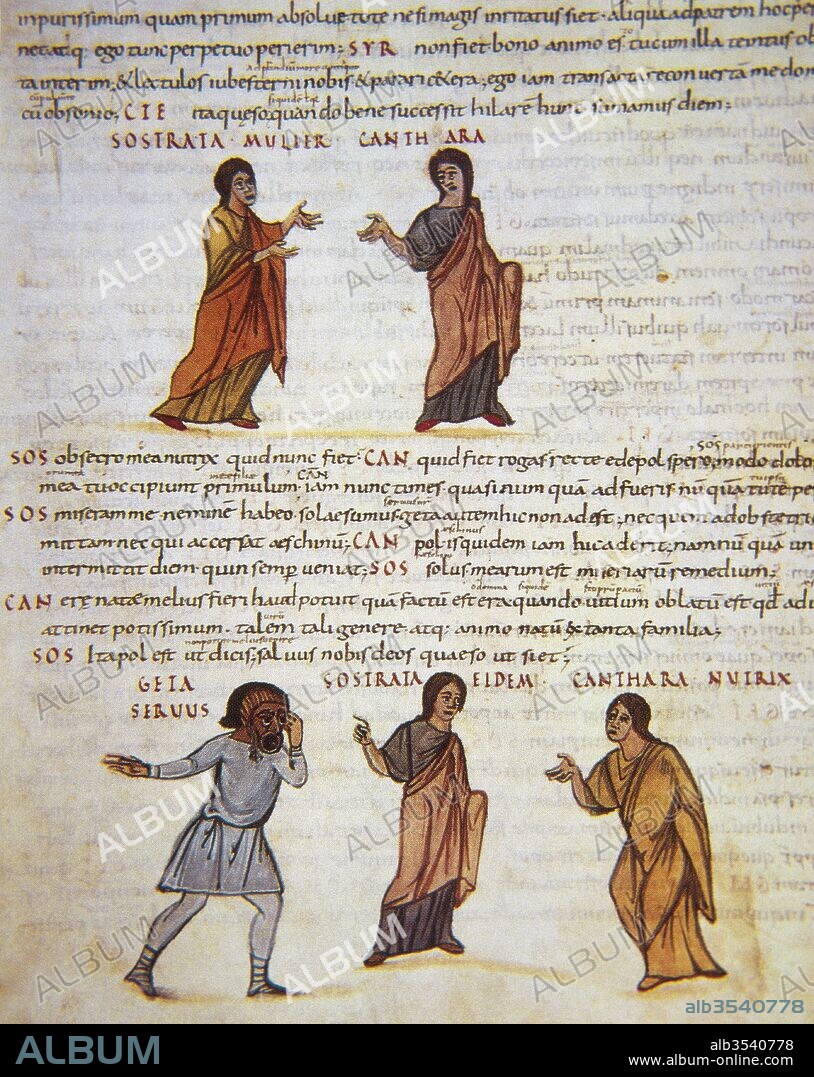 inpurissimum quam primum absoluitote ne si magis inritatus siet · aliqua ad patrem hoc per
neatq; ego tunc perpetuo perierim; SYR non fiet bono animo es tu cum illa te intus ob
ta interim; & lectulos iube sterni nobis & parari cetera; ego iam transacta re convertam me dom
cu obsonio; CTE ita quęso, quando bene successit hilare hunc sumamus diem;
SOSTRATA · MULIER CANTHARA
SOS obsecro mea nutrix quid nunc fiet · CAN quid fiet rogas recte edepol spero, modo dolo
mea tu occipiunt primulum iam nunc times quasi numquā adfueris nūquā tute pe
SOS miseram me neminē habeo solae sumus geta autem hic non adest, nec quem ad obstetri
mittam nec qui accersat aeschinū; CAN pol is quidem iam hic aderit, nam nūquā un
intermittit diem quin semp veniat; SOS solus mearum est miseriarū remedium;
CAN ere nata melius fieri haud potuit quā factū est era quando vitium oblatū est qd ad
attinet potissimum · talem tali genere atq; animo natū ex tanta familia;
SOS Ita pol est ut dicis; salvus nobis deos quaeso ut siet;
GETA SOSTRATA EIDEM CANTHARA NUTRIX
SERUUS
ALBUM
alb3540778
ALBUM
alb3540778
www.album-online.com